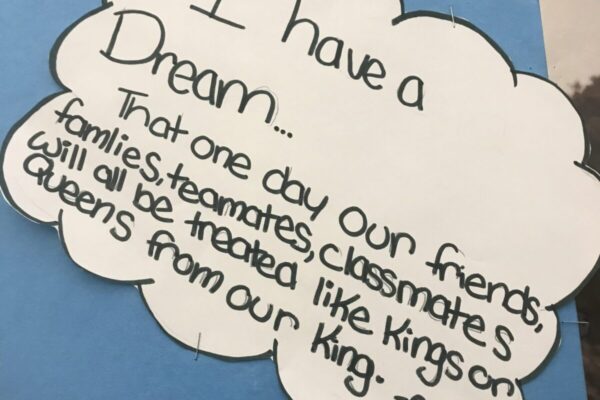 I have a
Dream...
That one day our friends,
famlies, teamates, classmates
will all be treated like Kings or
Queens from our King.